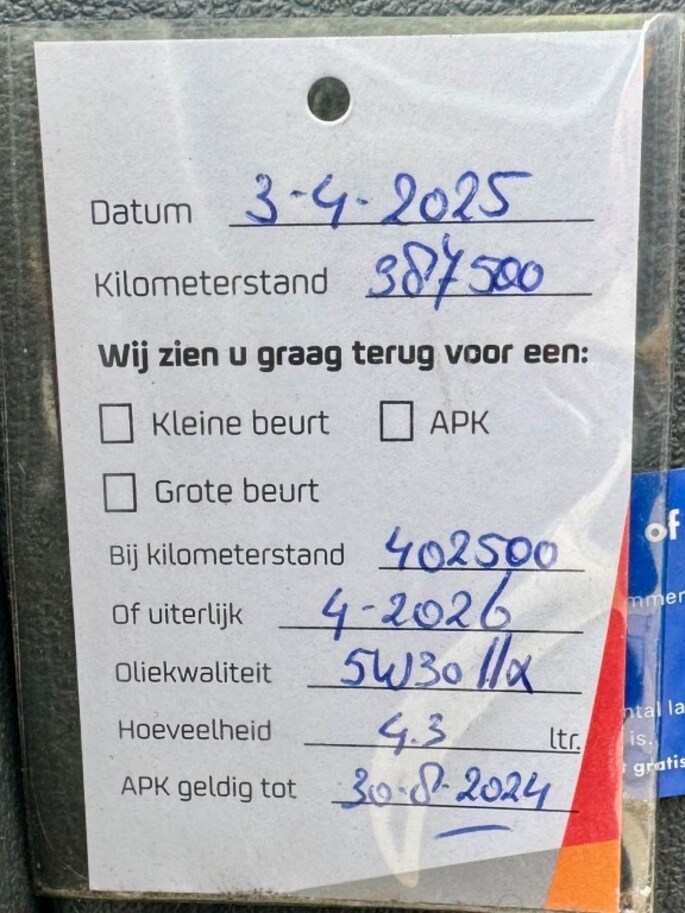 Datum 3-4-2025
Kilometerstand 387500
Wij zien u graag terug voor een:
Kleine beurt APK
Grote beurt
Bij kilometerstand 402500
of
Of uiterlijk 4-2026
Oliekwaliteit 5W30
Hoeveelheid 4.3 ltr.
is.
gratis
APK geldig tot 30-8-2024